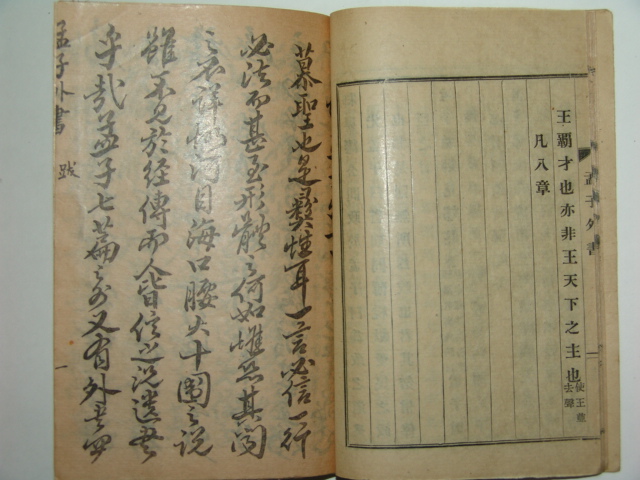 王霸才也亦非王天下之主也
使王並
去聲
凡八章
孟子外書
一
慕聖也是彝性耳一言必信一行
必法而甚至形體之何如惟恐其聞
之不詳 河目海口腰大十圍之說
雖不見於經傳而人皆信之況遺書
乎哉孟子七篇之外又有外書四
孟子外書
跋
一